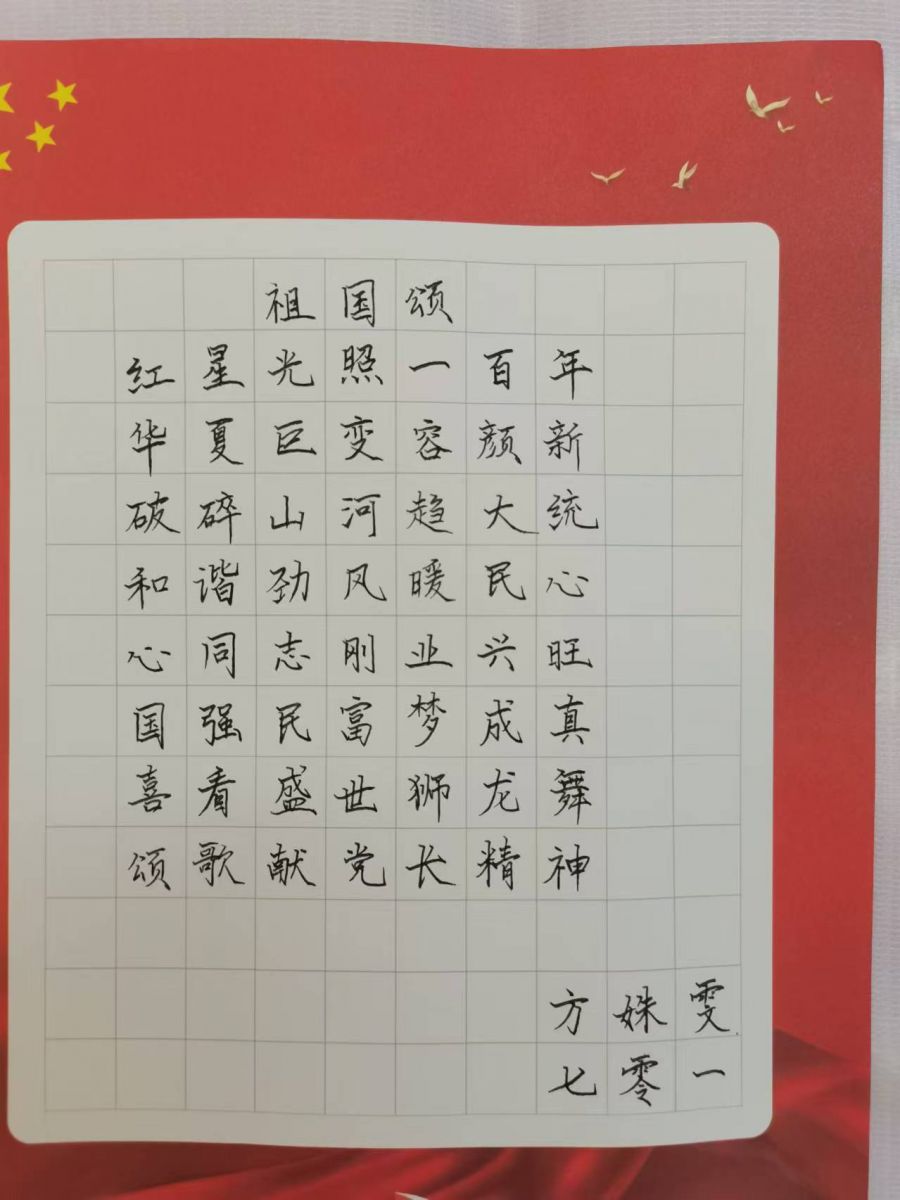 祖国颂
红星光照一百年
华夏巨变容颜新
破碎山河趋大统
和谐劲风暖民心
心同志刚业兴旺
国强民富梦成真
喜看盛世狮龙舞
颂歌献党长精神
方姝雯
七零一